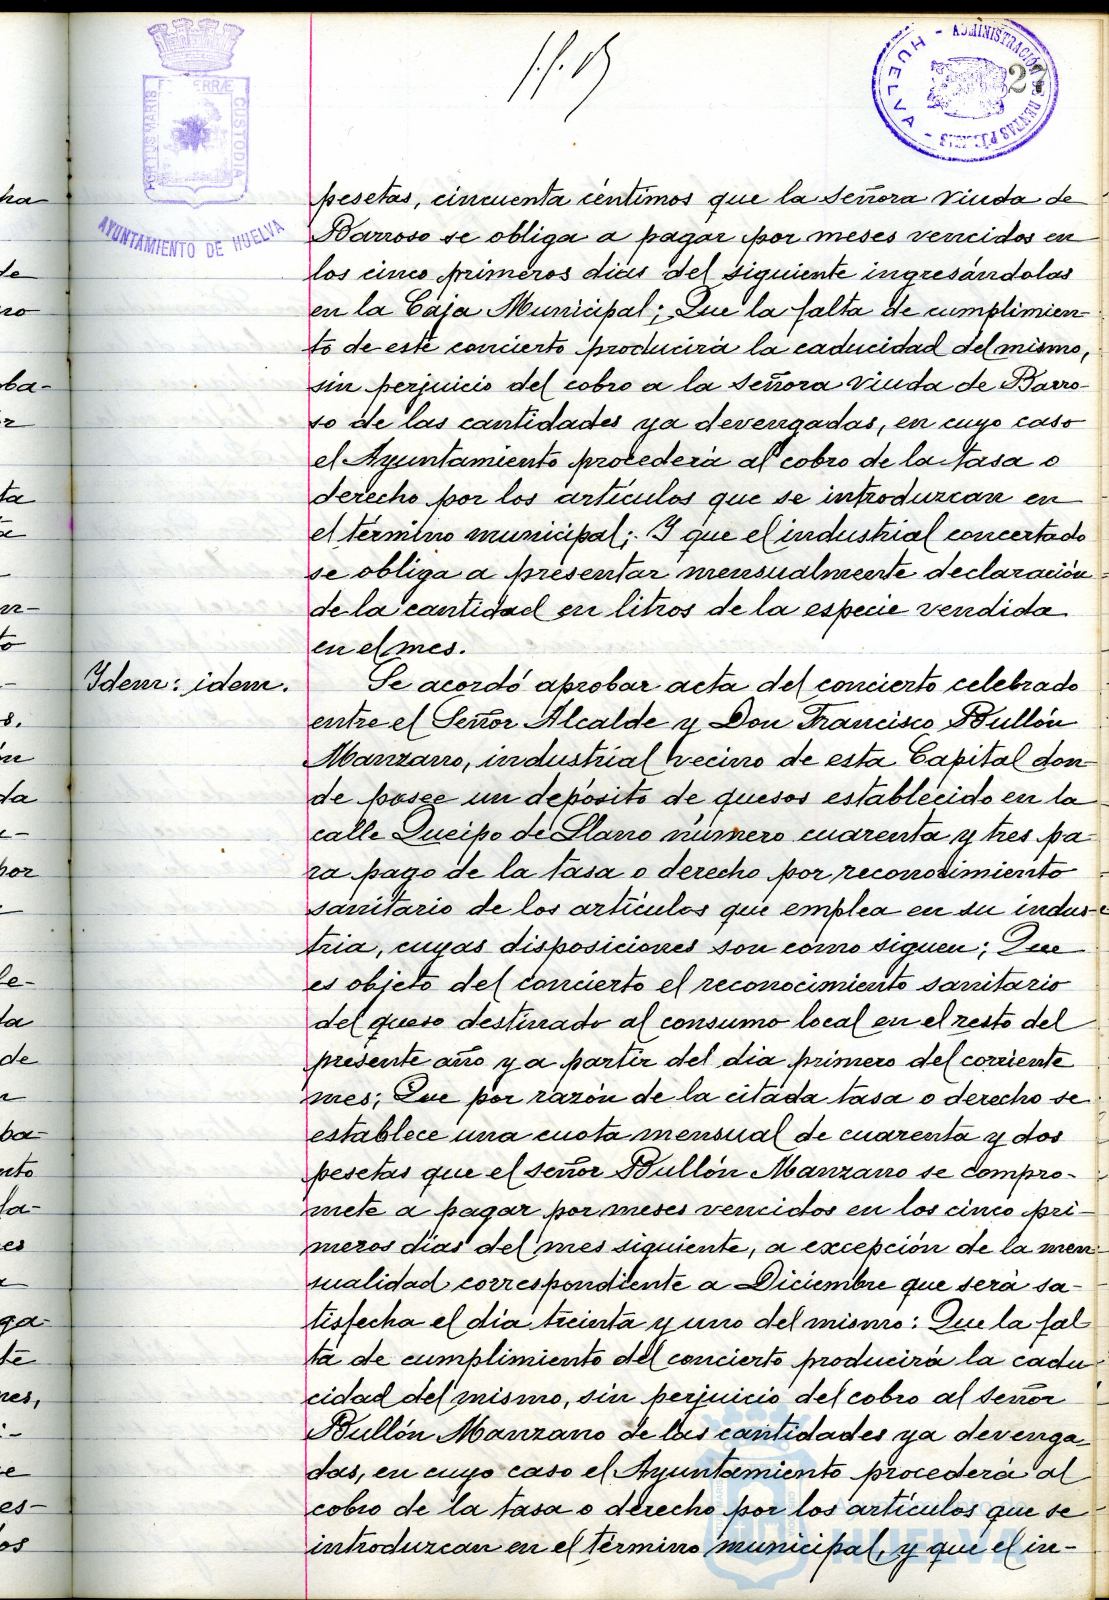 PORTUS MARIS
TERRÆ
CUSTODIA
AYUNTAMIENTO DE HUELVA
ADMINISTRACIÓN DE RENTAS PÚBLICAS - HUELVA -
27
pesetas, cincuenta céntimos que la señora viuda de
Barroso se obliga a pagar por meses vencidos en
los cinco primeros dias del siguiente ingresándolas
en la Caja Municipal; Que la falta de cumplimien-
to de este concierto producirá la caducidad del mismo,
sin perjuicio del cobro a la señora viuda de Barro-
so de las cantidades ya devengadas, en cuyo caso
el Ayuntamiento procederá al cobro de la tasa o
derecho por los artículos que se introduzcan en
el término municipal; Y que el industrial concertado
se obliga a presentar mensualmente declaración
de la cantidad en litros de la especie vendida
en el mes.
Idem: idem.
Se acordó aprobar acta del concierto celebrado
entre el Señor Alcalde y Don Francisco Bullón
Manzano, industrial vecino de esta Capital don-
de posee un depósito de quesos establecido en la
calle Queipo de Llano número cuarenta y tres pa-
ra pago de la tasa o derecho por reconocimiento
sanitario de los artículos que emplea en su indus-
tria, cuyas disposiciones son como siguen; Que
es objeto del concierto el reconocimiento sanitario
del queso destinado al consumo local en el resto del
presente año y a partir del dia primero del corriente
mes; Que por razón de la citada tasa o derecho se
establece una cuota mensual de cuarenta y dos
pesetas que el señor Bullón Manzano se compro-
mete a pagar por meses vencidos en los cinco pri-
meros días del mes siguiente, a excepción de la men-
sualidad correspondiente a Diciembre que será sa-
tisfecha el día treinta y uno del mismo: Que la fal-
ta de cumplimiento del concierto producirá la cadu-
cidad del mismo, sin perjuicio del cobro al señor
Bullón Manzano de las cantidades ya devenga-
das, en cuyo caso el Ayuntamiento procederá al
cobro de la tasa o derecho por los artículos que se
introduzcan en el término municipal, y que el in-
HUELVA